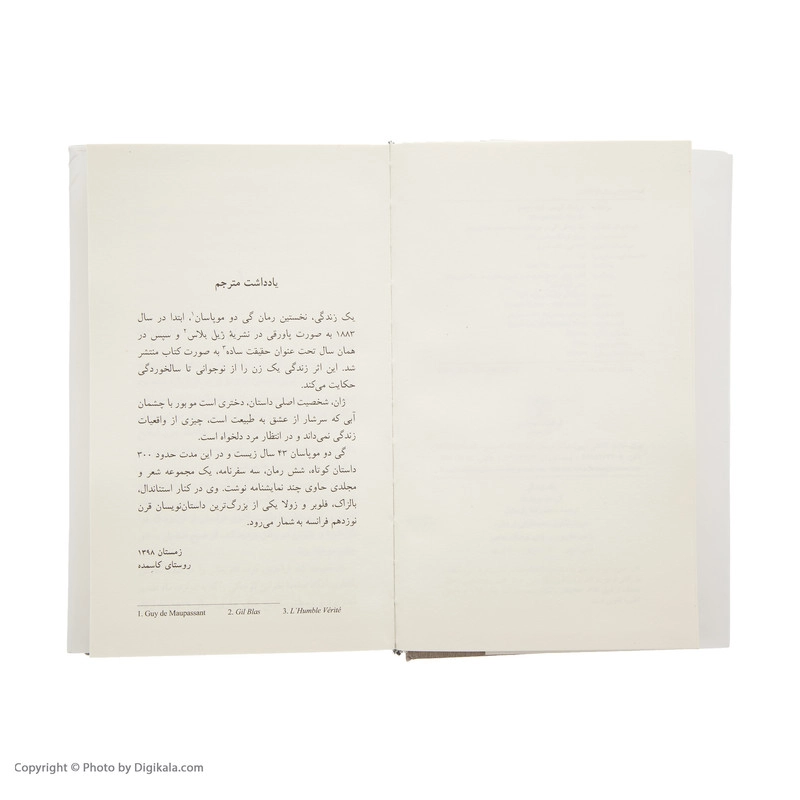 یادداشت مترجم
یک زندگی، نخستین رمان گی دو موپاسان۱، ابتدا در سال
۱۸۸۳ به صورت پاورقی در نشریهٔ ژیل بلاس۲ و سپس در
همان سال تحت عنوان حقیقت ساده۳ به صورت کتاب منتشر
شد. این اثر زندگی یک زن را از نوجوانی تا سالخوردگی
حکایت می‌کند.
ژان، شخصیت اصلی داستان، دختری است موبور با چشمان
آبی که سرشار از عشق به طبیعت است، چیزی از واقعیات
زندگی نمی‌داند و در انتظار مرد دلخواه است.
گی دو موپاسان ۴۳ سال زیست و در این مدت حدود ۳۰۰
داستان کوتاه، شش رمان، سه سفرنامه، یک مجموعه شعر و
مجلدی حاوی چند نمایشنامه نوشت. وی در کنار استاندال،
بالزاک، فلوبر و زولا یکی از بزرگ‌ترین داستان‌نویسان قرن
نوزدهم فرانسه به شمار می‌رود.
زمستان ۱۳۹۸
روستای کاسمده
1. Guy de Maupassant 2. Gil Blas 3. L'Humble Vérité
Copyright © Photo by Digikala.com